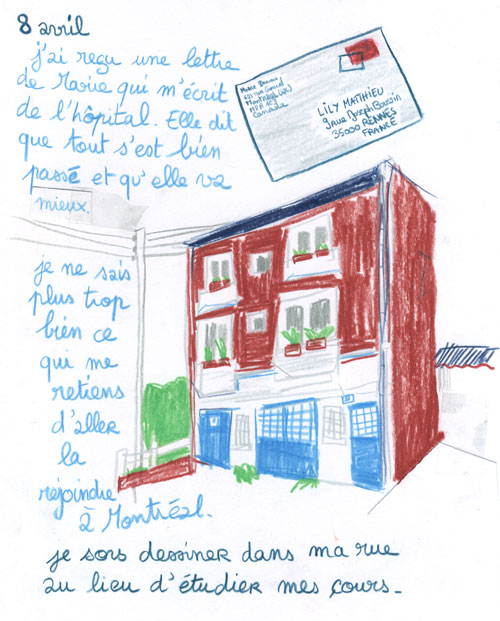 8 avril
j'ai reçu une lettre
de Marie qui m'écrit
de l'hôpital. Elle dit
que tout s'est bien
passé et qu'elle va
mieux.
Montréal (QC)
Canada
LILY MATTHIEU
35000 RENNES
FRANCE
je ne sais
plus trop
bien ce
qui me
retiens
d'aller
la
rejoindre
à Montréal.
je sors dessiner dans ma rue
au lieu d'étudier mes cours_